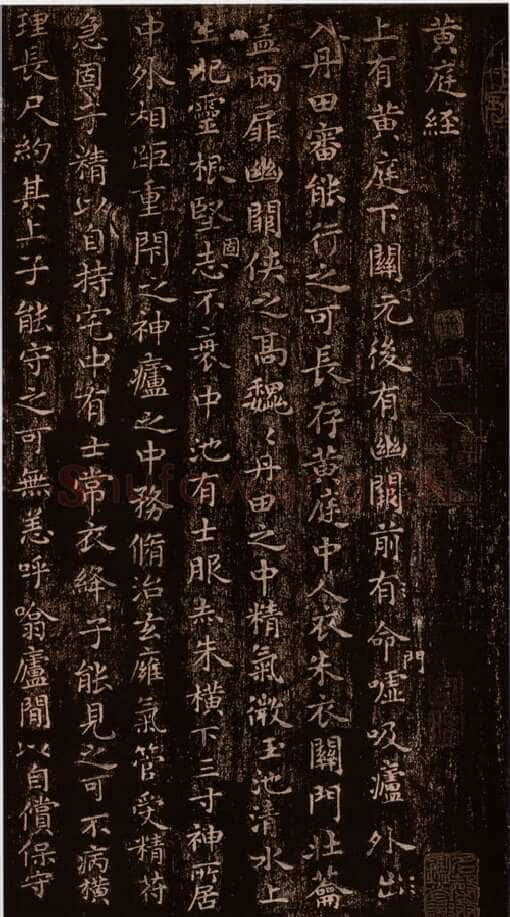 黄庭經
上有黄庭下關元後有幽闕前有命門嘘吸廬外出
入丹田審能行之可長存黄庭中人衣朱衣關門壯蘥
盖兩扉幽闕侠之高魏〻丹田之中精氣微玉池清水上
生肥靈根堅固志不衰中池有士服赤朱横下三寸神所居
中外相距重閇之神廬之中務脩治玄癰氣管受精符
急固子精以自持宅中有士常衣絳子能見之可不病横
理長尺約其上子能守之可無恙呼噏廬閒以自償保守